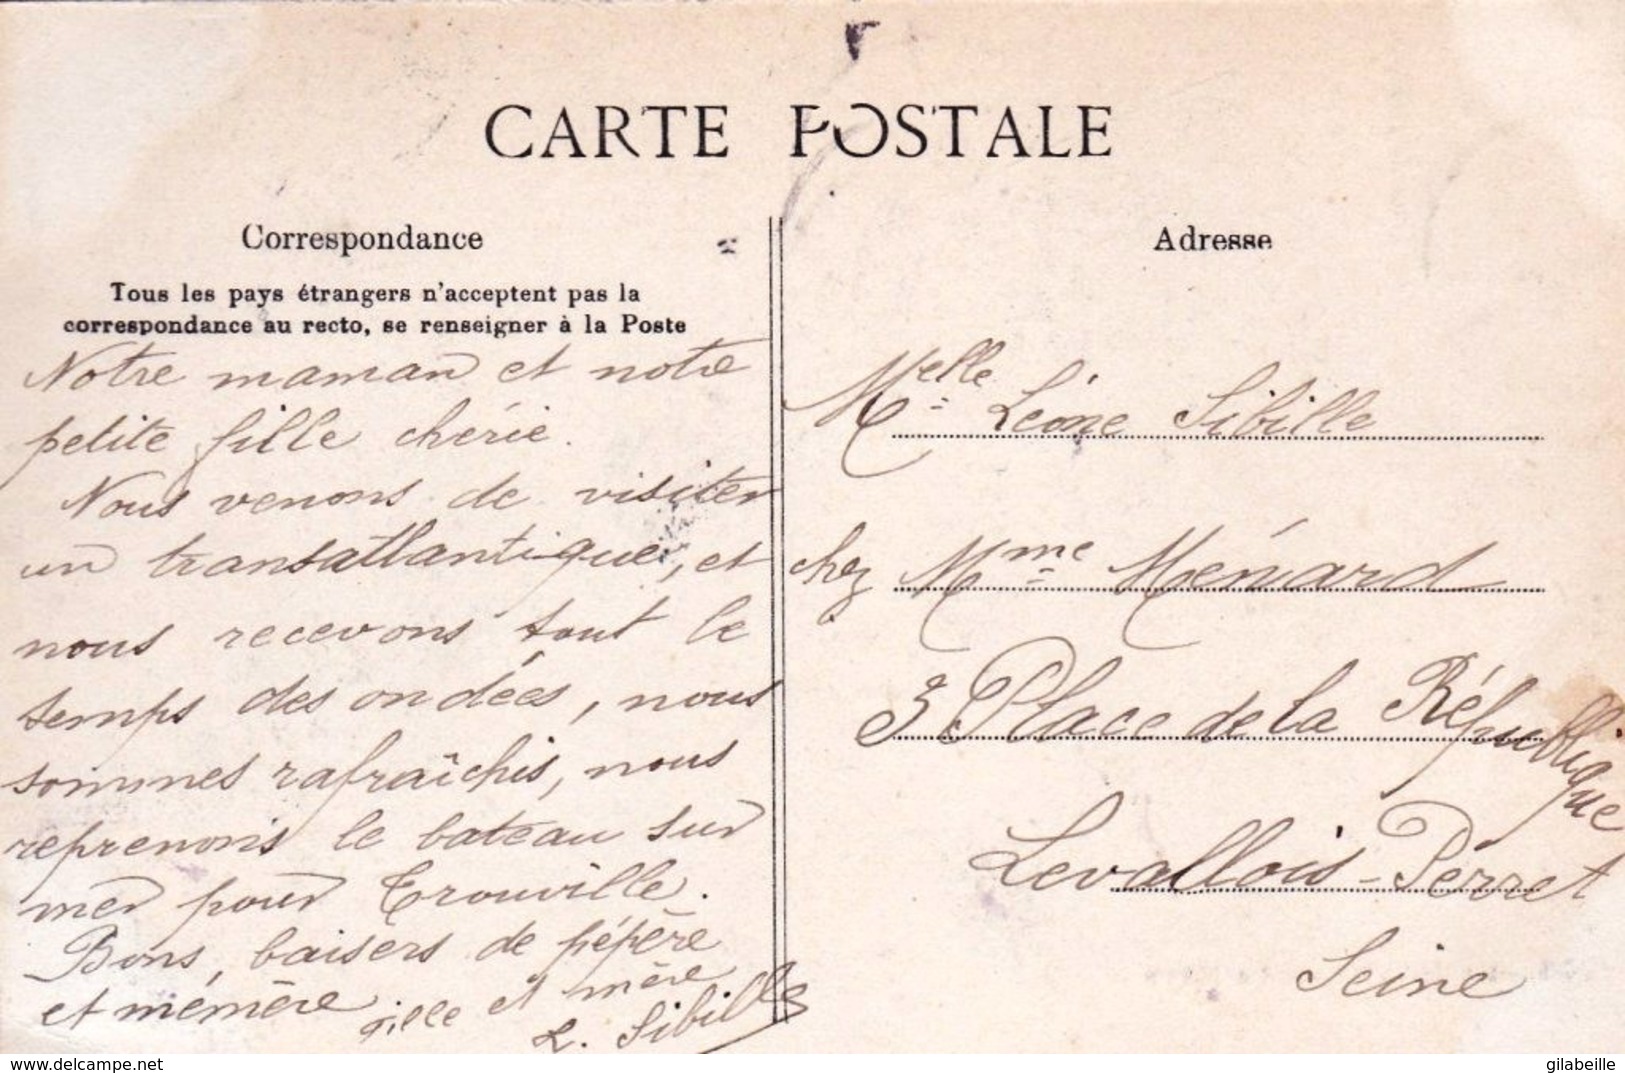 CARTE POSTALE
Correspondance
Tous les pays étrangers n'acceptent pas la
correspondance au recto, se renseigner à la Poste
Notre maman et notre
petite fille chérie.
Nous venons de visiter
un transatlantique, et
nous recevons tout le
temps des ondées, nous
sommes rafraîchis, nous
reprenons le bateau sur
mer pour Trouville.
Bons, baisers de pépère
et mémère fille et mère
L. Sibille
Adresse
Melle Léone Sibille
chez Mme Ménard
3 Place de la République
Levallois-Pérret
Seine
https://www.delcampe.net
gilabeille